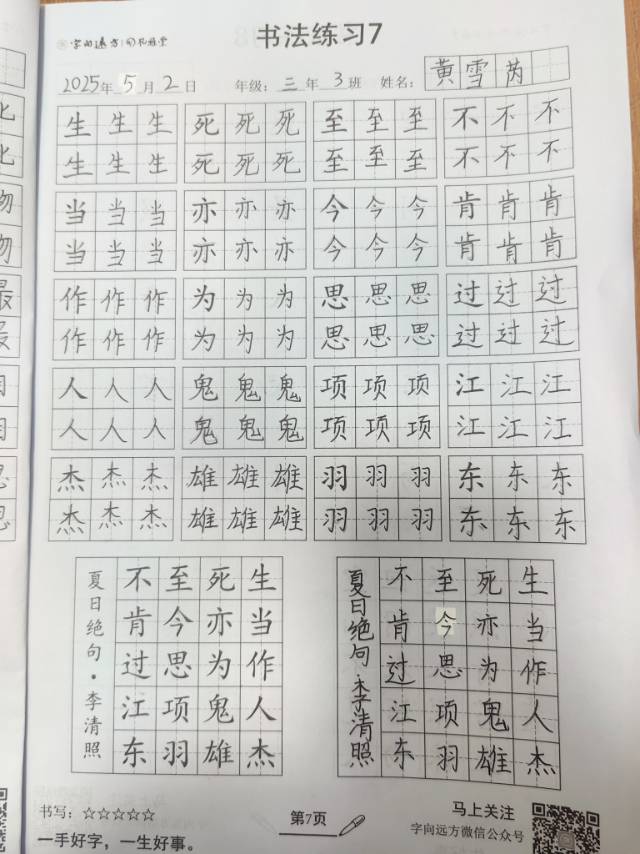 书法练习7
2025年5月2日 年级：三年3班 姓名：黄雪芮
生生生 死死死 至至至 不不不
生生生 死死死 至至至 不不不
当当当 亦亦亦 今今今 肯肯肯
当当当 亦亦亦 今今今 肯肯肯
作作作 为为为 思思思 过过过
作作作 为为为 思思思 过过过
人人人 鬼鬼鬼 项项项 江江江
人人人 鬼鬼鬼 项项项 江江江
杰杰杰 雄雄雄 羽羽羽 东东东
杰杰杰 雄雄雄 羽羽羽 东东东
生当作人杰
死亦为鬼雄
至今思项羽
不肯过江东
夏日绝句·李清照
生当作人杰
死亦为鬼雄
至今思项羽
不肯过江东
夏日绝句·李清照
书写：☆☆☆☆☆
一手好字，一生好事。
第7页
马上关注
字向远方微信公众号